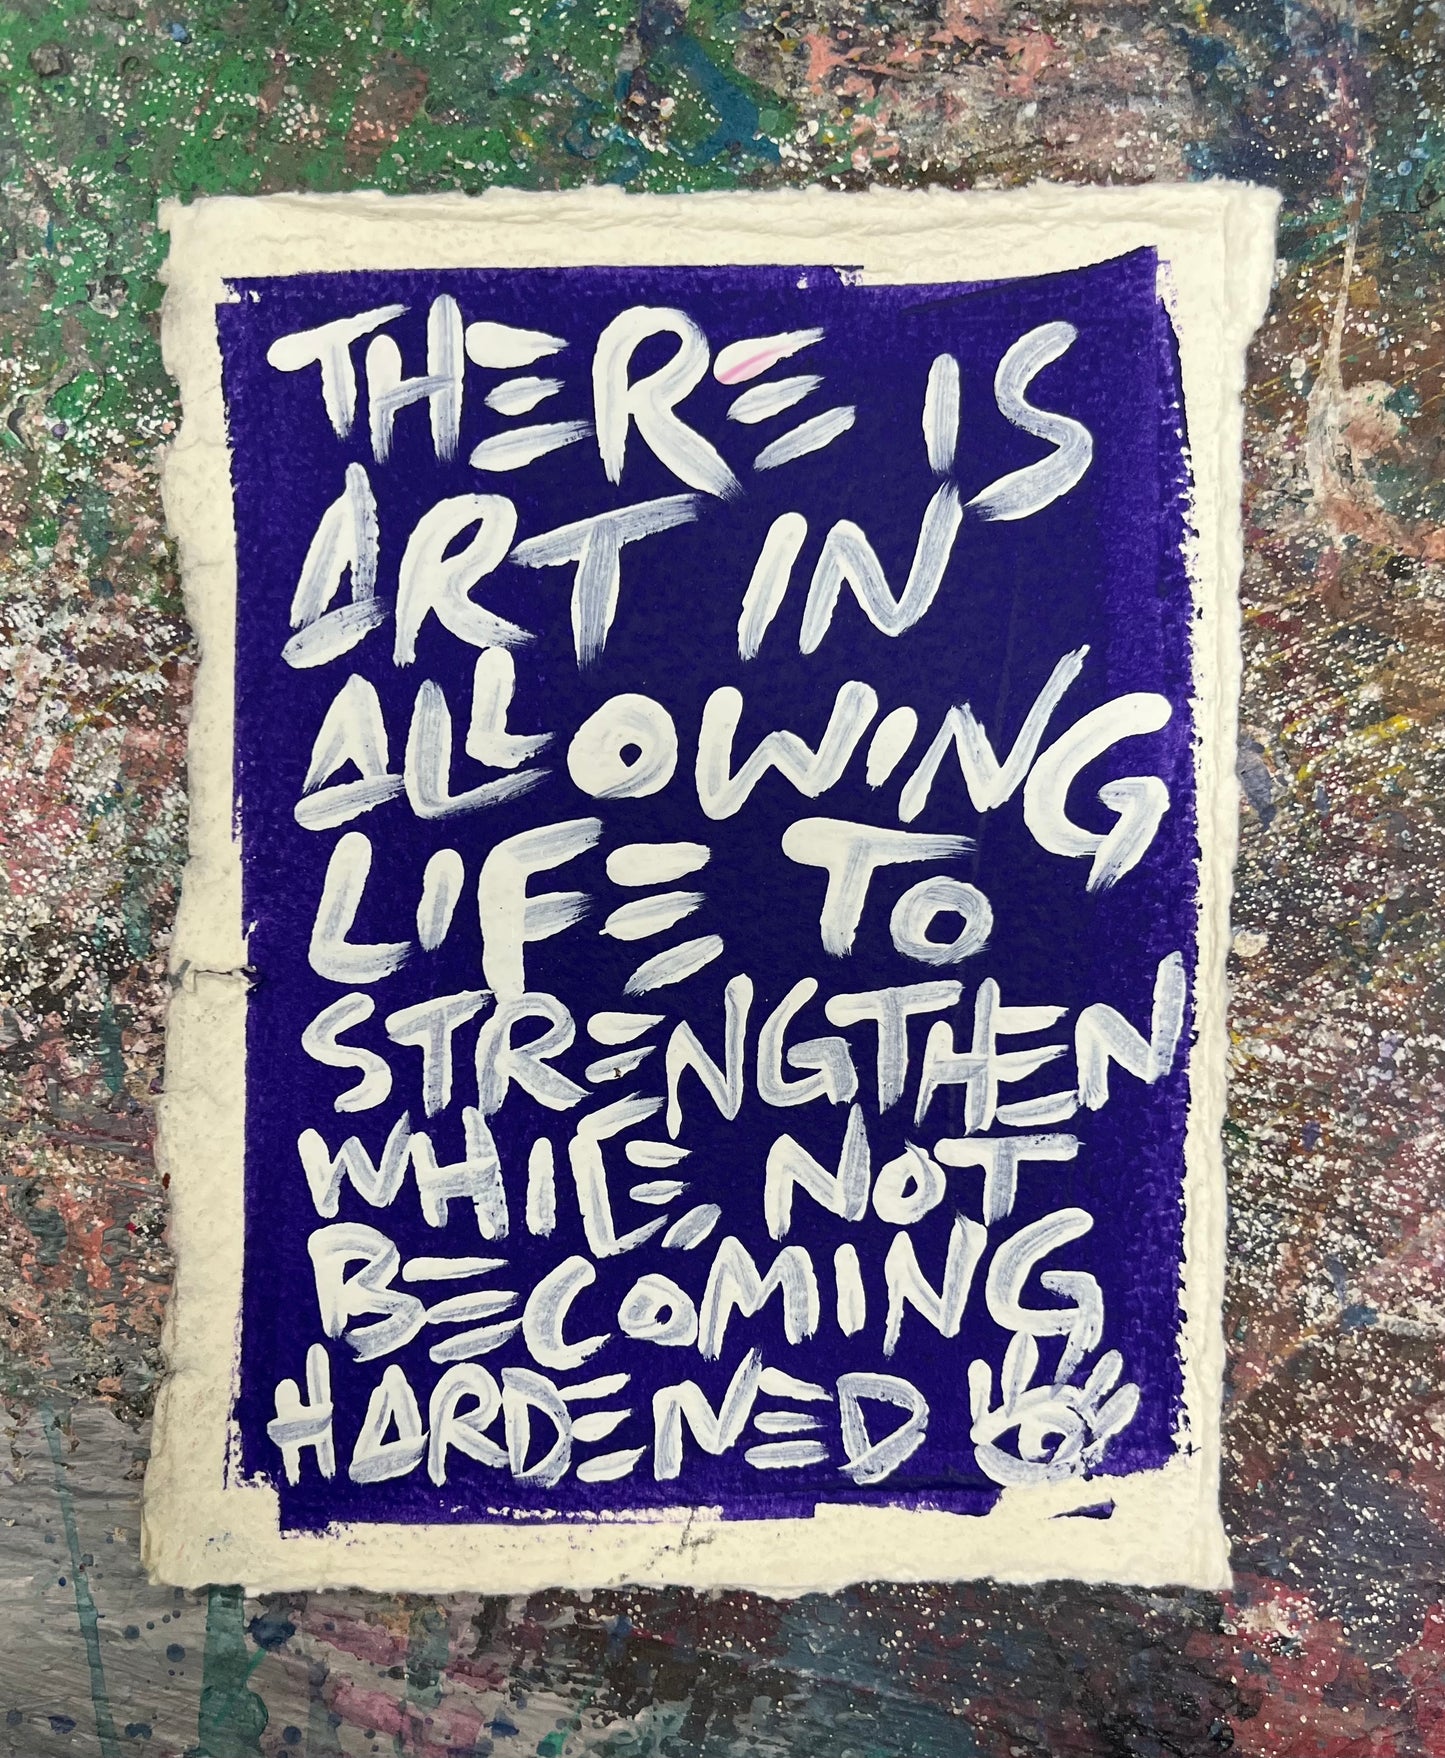 THERE IS
ART IN
ALLOWING
LIFE TO
STRENGTHEN
WHILE NOT
BECOMING
HARDENED